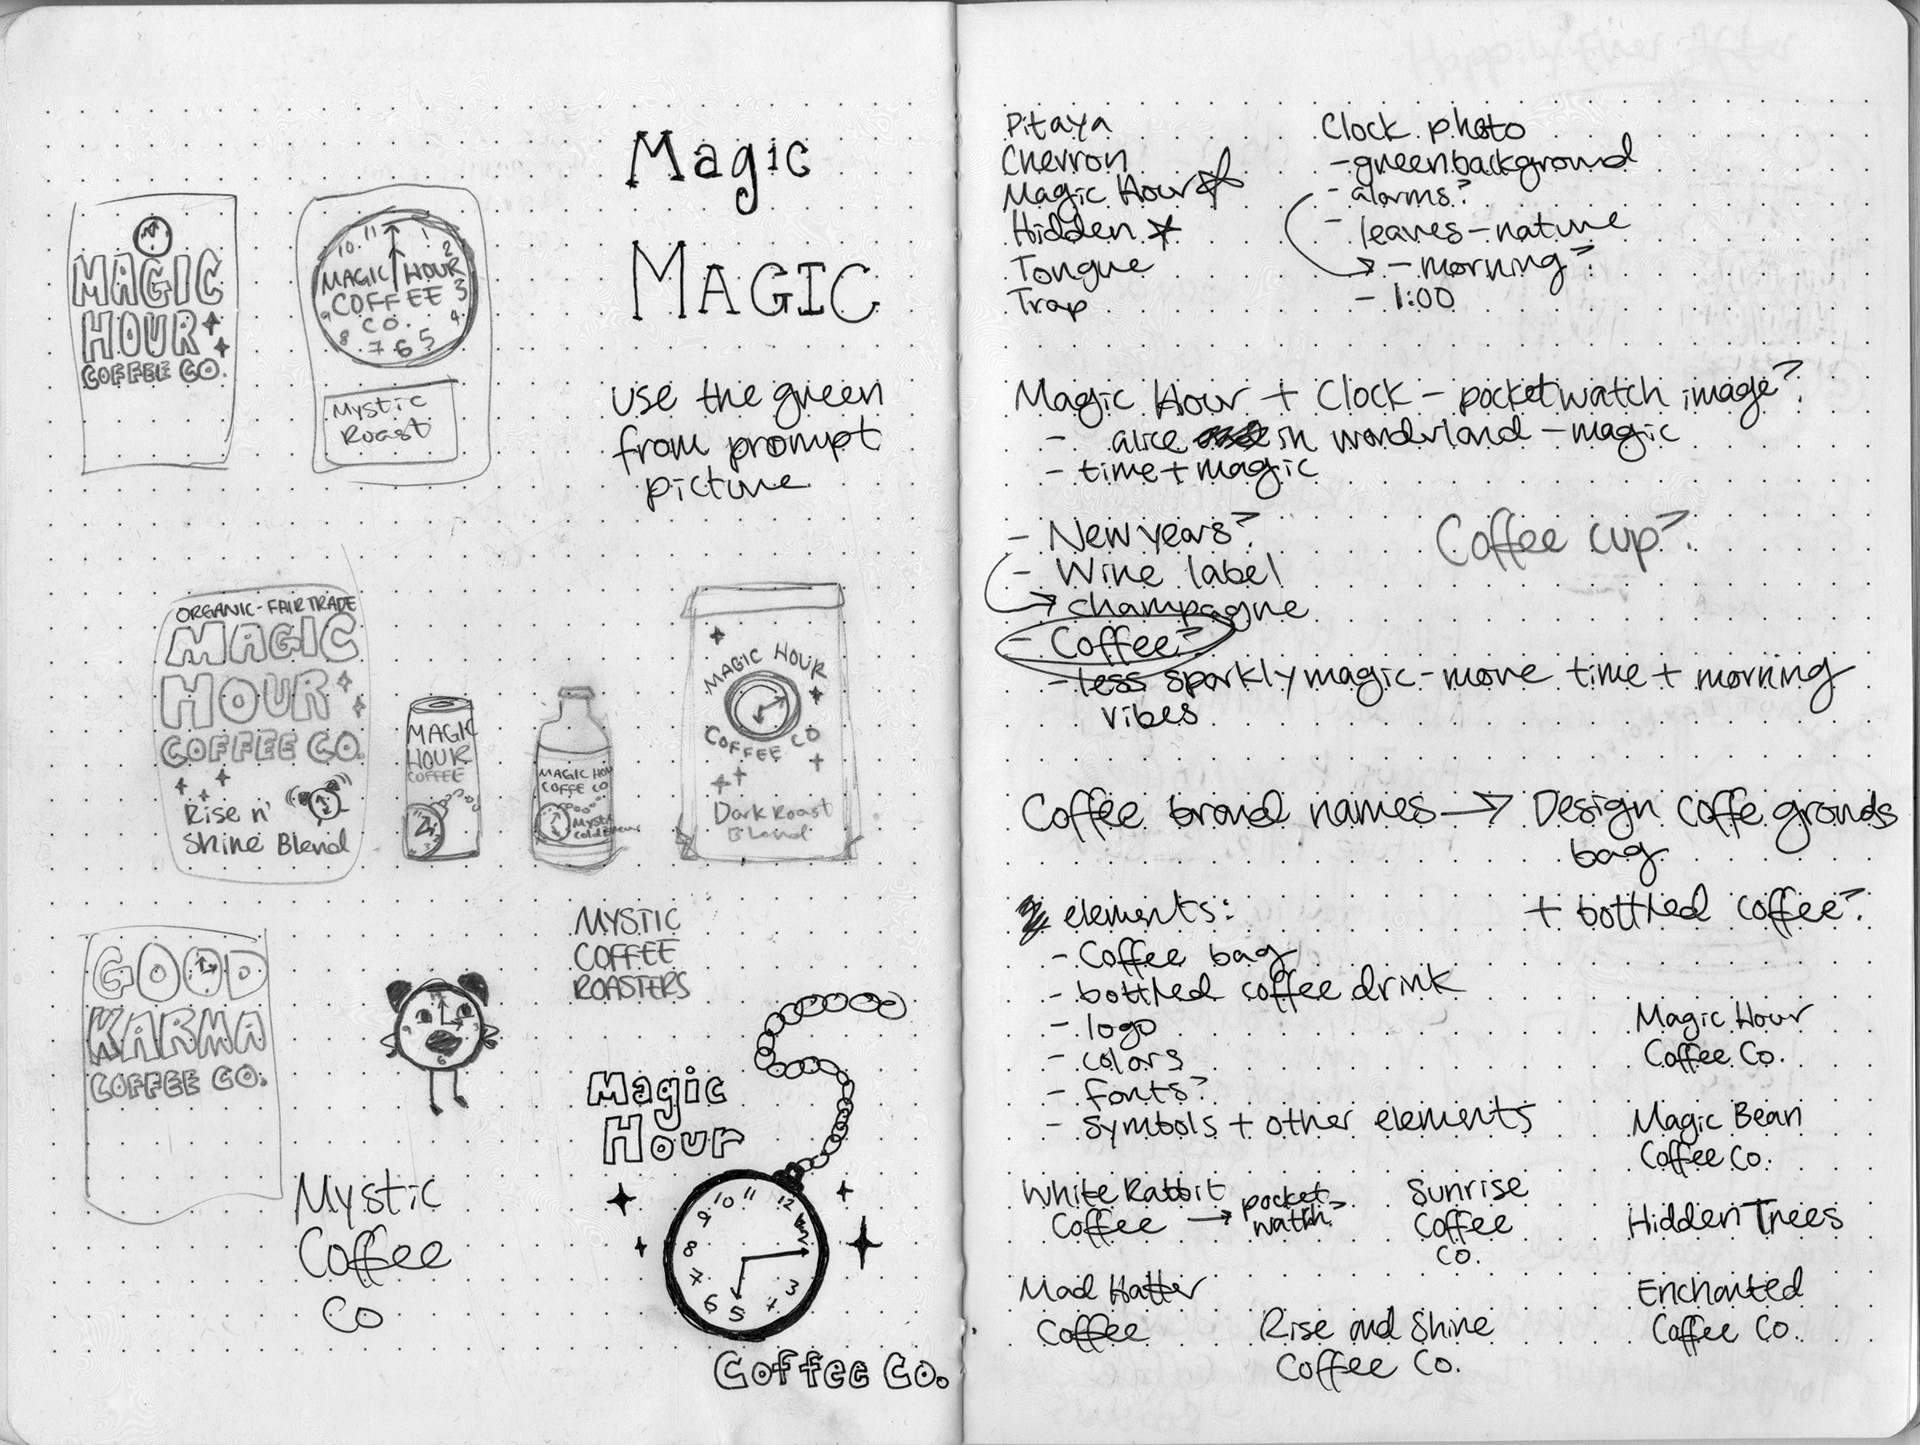 Magic
MAGIC
use the green
from prompt
picture
MAGIC
HOUR
COFFEE CO.
10 11 1
2
MAGIC HOUR
COFFEE 3
CO.
9 4
8 7 6 5
Mystic
Roast
ORGANIC-FAIR TRADE
MAGIC
HOUR
COFFEE CO.
Rise n'
Shine Blend
MAGIC
HOUR
COFFEE
MAGIC HOU
COFFE CO
Mystic
MAGIC HOUR
COFFEE CO
Dark Roast
Blend
GOOD
KARMA
COFFEE CO.
6
MYSTIC
COFFEE
ROASTERS
Mystic
Coffee
Co
Magic
Hour
10 11 12
9
8
7 3
6 5 4
Coffee Co.
Pitaya
Chevron
Magic Hour
Hidden
Tongue
Trap
Clock photo
- green background
- alarms?
- leaves - nature
- morning?
- 1:00
Magic Hour + Clock - pocketwatch image?
- alice in wonderland - magic
- time + magic
- New years?
- Wine label
champagne
- Coffee?
- less sparkly magic - more time + morning
vibes
Coffee cup?
Coffee brand names → Design coffe grounds
bag
+ bottled coffee?
elements:
- Coffee bag
- bottled coffee drink
- logo
- colors
- fonts?
- symbols + other elements
Magic Hour
Coffee Co.
Magic Bean
Coffee Co.
White Rabbit
Coffee → pocket
watch
Sunrise
Coffee
Co.
Hidden Trees
Mad Hatter
Coffee
Rise and Shine
Coffee Co.
Enchanted
Coffee Co.